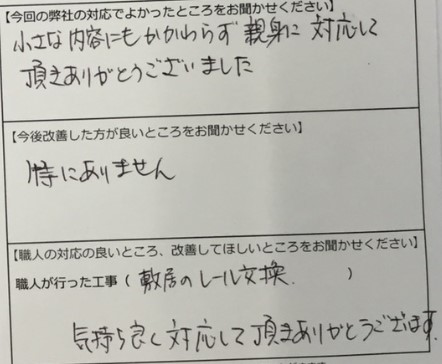 【今回の弊社の対応でよかったところをお聞かせください】
小さな内容にもかかわらず 親身に 対応して
頂きありがとうございました
【今後改善した方が良いところをお聞かせください】
特にありません
【職人の対応の良いところ、改善してほしいところをお聞かせください】
職人が行った工事（ 敷居のレール交換. ）
気持ち良く対応して頂きありがとうございます